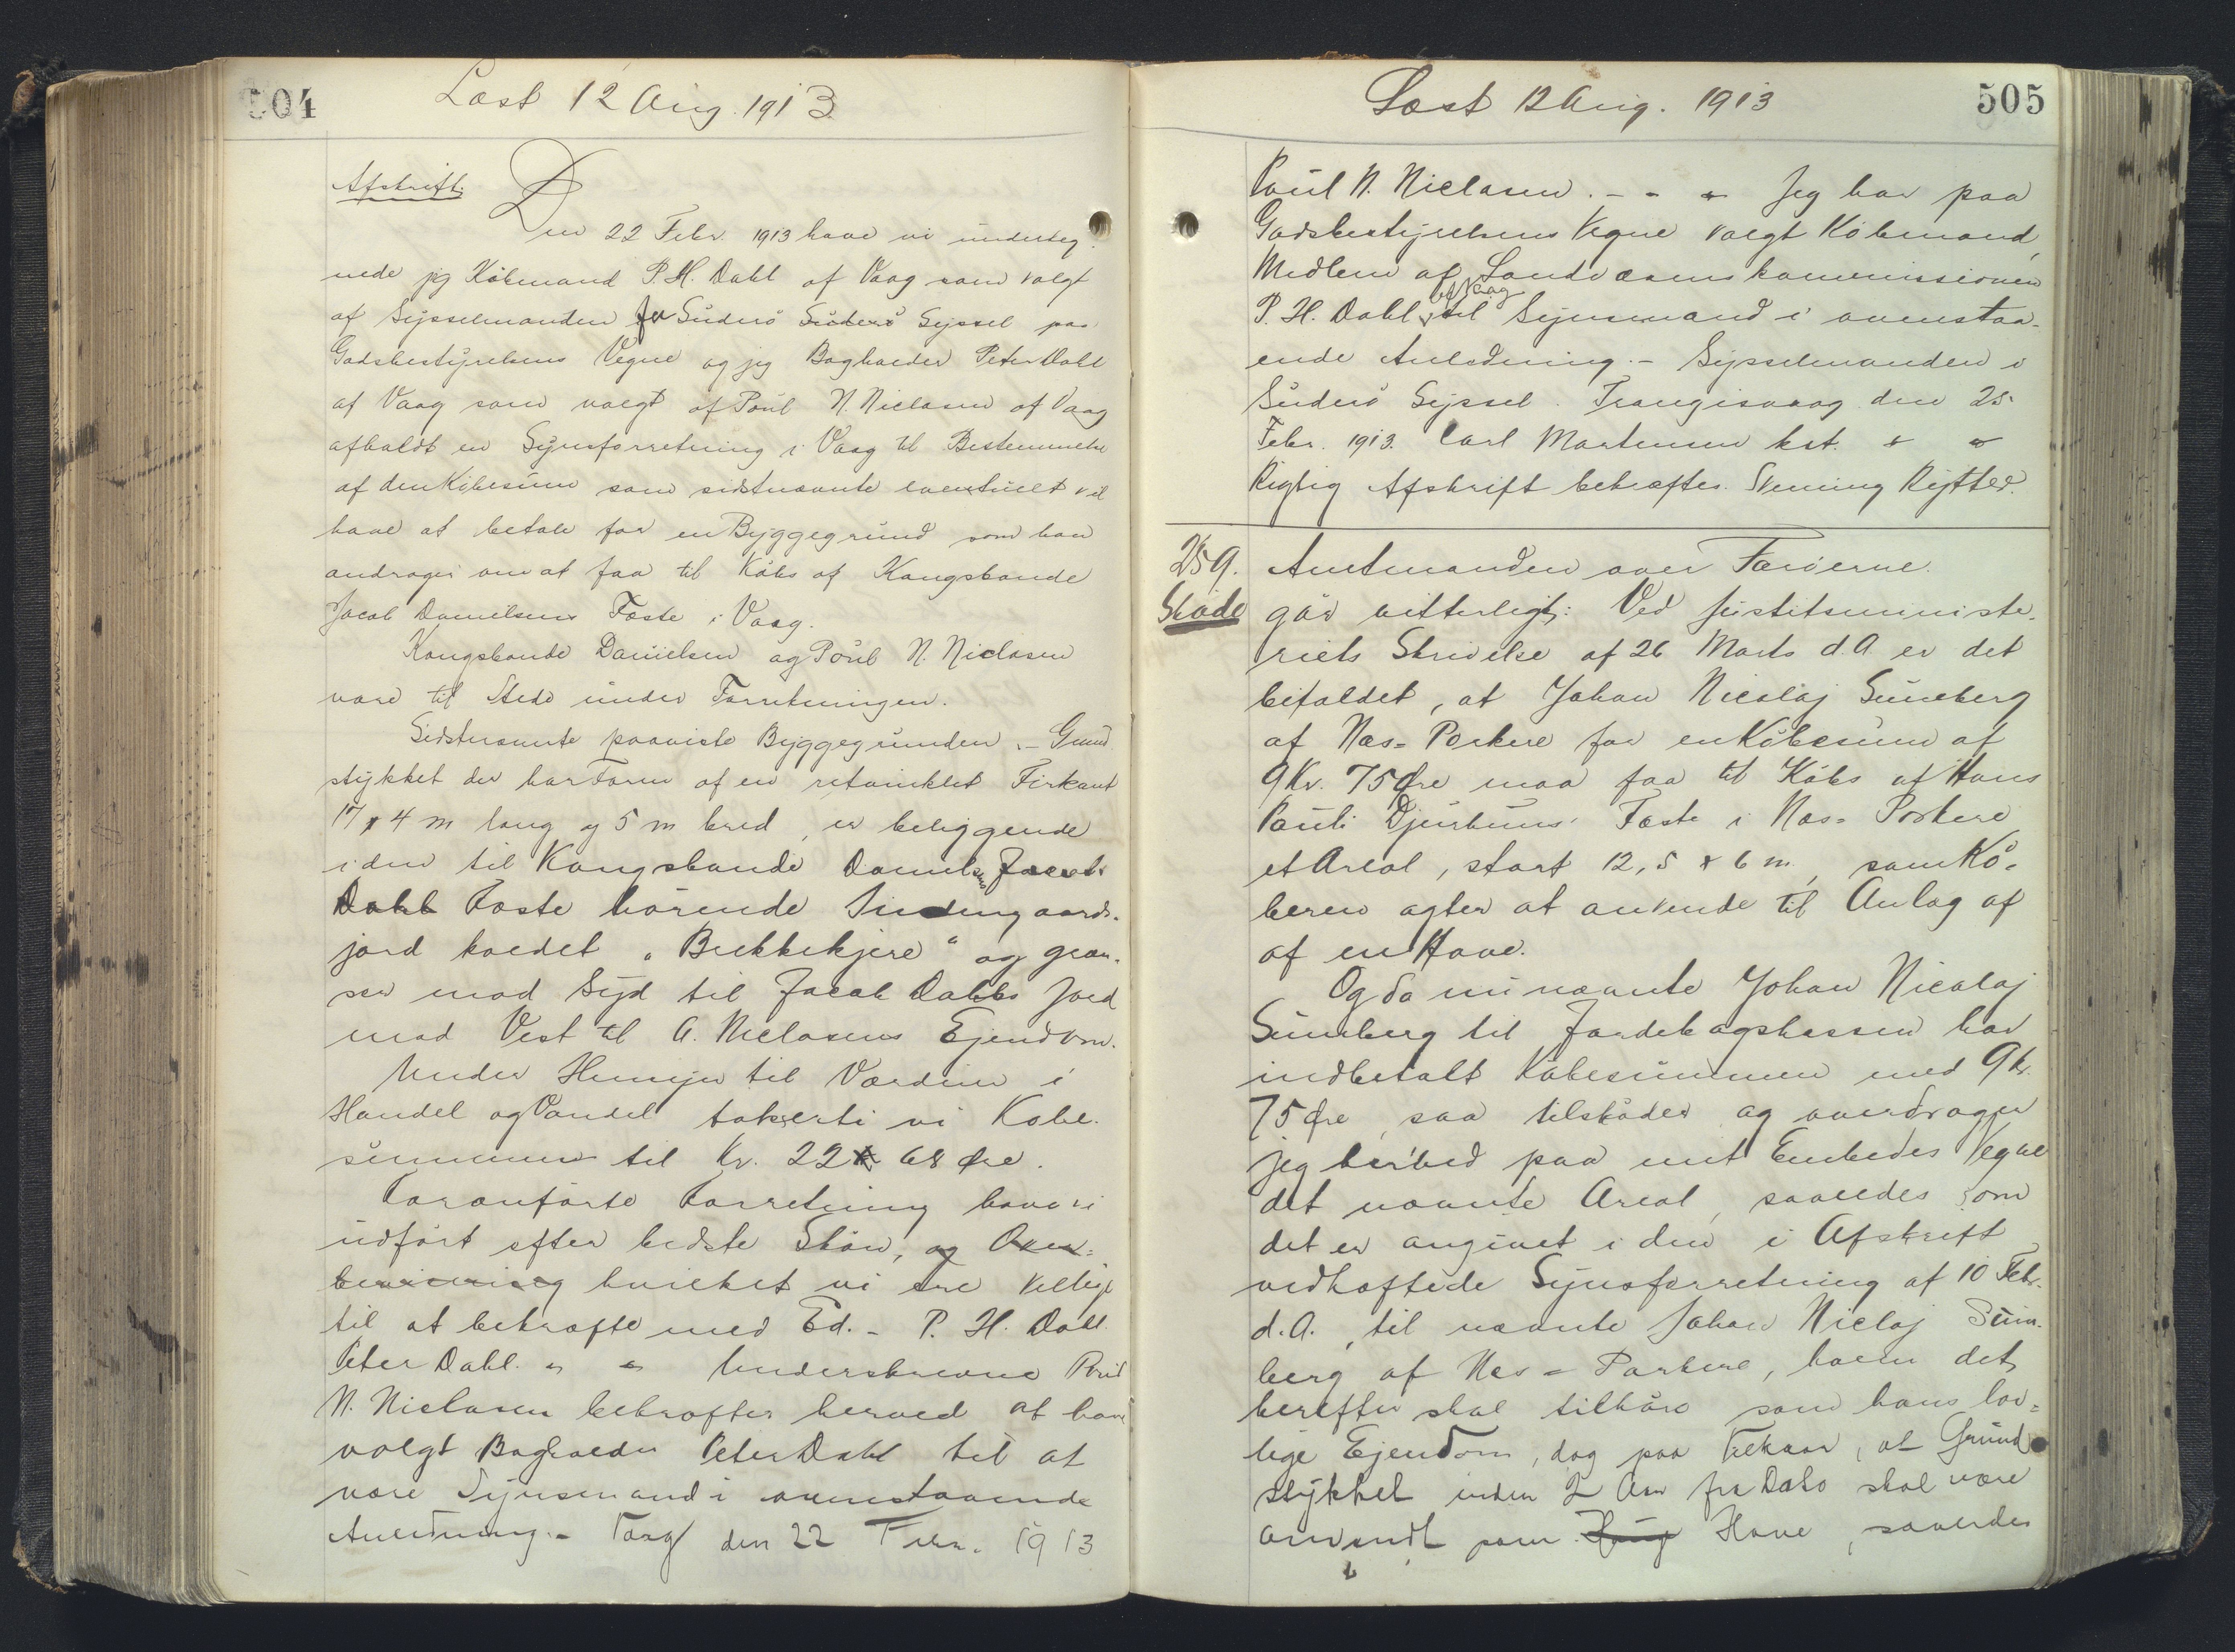 504
Læst 12 Aug. 1913
Afskrift.
Den 22 Febr. 1913 have vi underteg-
nede jeg Købmand P. H. Dahl af Vaag som valgt
af Sysselmanden for Suderø Suderø Syssel paa
Godsbestyrelsens Vegne og jeg Bogholder Peter Dahl
af Vaag som valgt af Poul N. Niclasen af Vaag
afholdt en Synsforretning i Vaag til Bestemmelse
af den Købesum som sidstnævnte eventuelt vil
have at betale for en Byggegrund som han
andrager om at faa til Købs af Kongsbonde
Jacob Danielsens Fæste i Vaag.
Kongsbonde Danielsen og Poul N. Niclasen
vare til Stede under Forretningen.
Sidstnævnte paaviste Byggegrunden. - Grund
stykket der har Form af en retvinklet Firkant
17 x 4 m lang og 5 m bred, er beliggende
i den til Kongsbonde Danielsens Jacob
Dahl Fæste hørende Indengaards-
jord kaldet "Brekkekjere" og græn-
ser mod Syd til Jacob Dahls Jord
mod Vest til A. Niclasens Ejendom.
Under Hensyn til Værdien i
Handel og Vandel takserte vi Købe-
summen til Kr. 22 68 Øre.
Foranførte Forretning have vi
udført efter bedste Skøn, og Over-
bevisning hvilket vi ere villige
til at bekræfte med Ed. - P. H. Dahl.
Peter Dahl. " " Underskrevne Poul
N. Niclasen bekræfter herved at have
valgt Bogholder Peter Dahl til at
være Synsmand i ovenstaaende
Anledning. - Vaag den 22 Febr. 1913
Læst 12 Aug. 1913
505
Poul N. Niclasen. - - " Jeg har paa
Godsbestyrelsens Vegne valgt Købmand,
Medlem af Landvæsenskommissionen
P. H. Dahl af Vaag til Synsmand i ovenstaa-
ende Anledning. - Sysselmanden i
Suderø Syssel. Trangisvaag den 25
Febr. 1913. Carl Mortensen kst. " "
Rigtig Afskrift bekræftes. Svenning Rytter.
259.
Skøde
Amtmanden over Færøerne.
gør vitterligt: Ved Justitsministe-
riets Skrivelse af 26 Marts d.A er det
bifaldet, at Johan Nicolaj Sumberg
af Næs=Porkere for en Købesum af
9 Kr. 75 Øre maa faa til Købs af Hans
Pauli Djurhuus' Fæste i Næs=Porkere
et Areal, stort 12,5 x 6 m, som Kø-
beren agter at anvende til Anlæg af
af en Have.
Og da nu nævnte Johan Nicolaj
Sumberg til Jordebogskassen har
indbetalt Købesummen med 9 Kr.
75 Øre, saa tilskøder og overdrager
jeg herved paa mit Embedes Vegne
det nævnte Areal, saaledes som
det er angivet i den i Afskrift
vedhæftede Synsforretning af 10 Febr.
d.A., til nævnte Johan Niclaj Sum-
berg af Næs=Porkere, hvem det
herefter skal tilhøre som hans lov-
lige Ejendom, dog paa Vilkaar, at Grund
stykket inden 2 Aar fra Dato skal være
anvendt som Have, saaledes